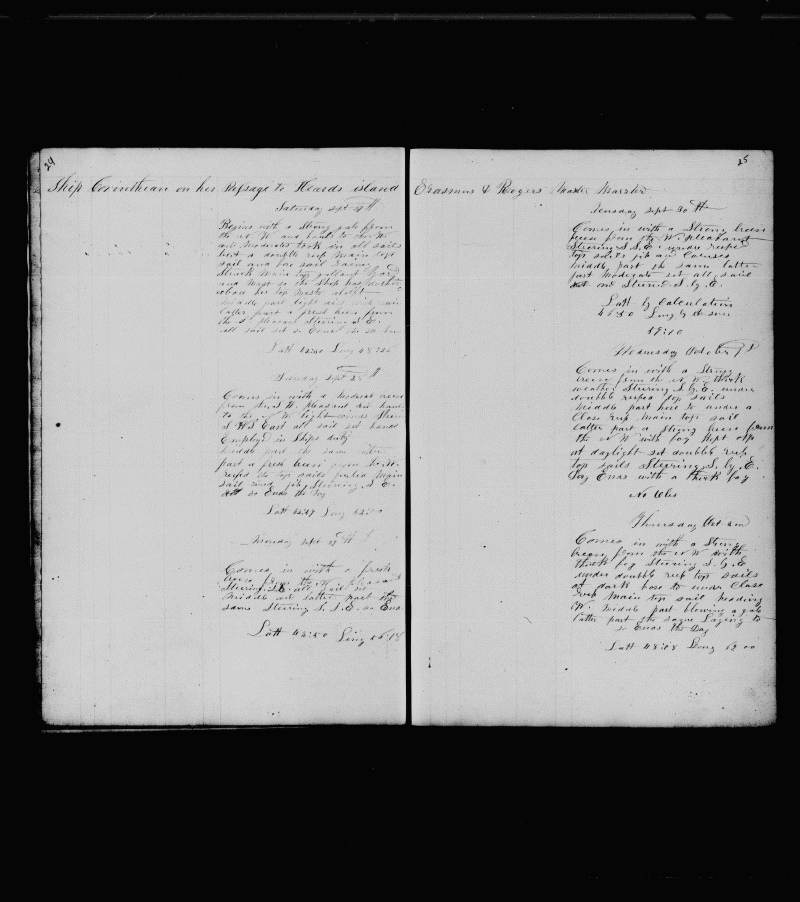 24
Ship Corinthian on her Passage to Heards island
Saturday Sept 27th
Begins with a Strong gale from
the N W and
and Moderates took in all sails
but a double reef Main top
sail and fore sail
Struck Main top gallant Yard
and Mast so the Ship has nothing
above her top Masts aloft
middle part light airs with rain
latter part a fresh breeze from
the pleasant Steering S. E.
all sail set so Ends
Latt Long 48
Sunday Sept 28th
Comes in with a moderat breeze
from the pleasant
to the N W light winds Steering
East all sail set hands
Employed in Ships duty
middle part the same latter
part a fresh breeze from the N.
reefed the top sails furled Main
sail and jib Steering S. E.
so Ends the Day
Latt Long 52
Monday Sept 29th
Comes in with a fresh
breeze from the N W pleasant
Steering S.E. all sail set
middle and latter part the
same Steering S. S. E. so Ends
Latt 45:50 Long 56:18
25
Erasmus D Rogers Master
Tuesday Sept 30th
Comes in with a Strong breeze
from the N. W. pleasant
Steering S. S. E. under reefed
top sails jib and Courses
middle part the same latter
part Moderate set all sail
and Steered S. by E.
Latt by Calculation
46:50 Long by the same
59:10
Wednesday October 1st
Comes in with a Strong
breeze from the N W thick
weather Steering S. by E. under
double reefed top sails
middle part hove to under a
Close reef Main top sail
latter part a Strong breeze from
the N W with fog Kept off
at daylight set double reef
top sails Steering S. by E.
Day Ends with a thick fog
No Obs
Thursday Oct 2nd
Comes in with a Strong
breeze from the N W with
thick fog Steering S. by E
under double reef top sails
at dark hove to under Close
reef Main top sail heading
W. middle part blowing a gale
latter part the same Laying to
so Ends the Day
Latt 48:08 Long 62 00